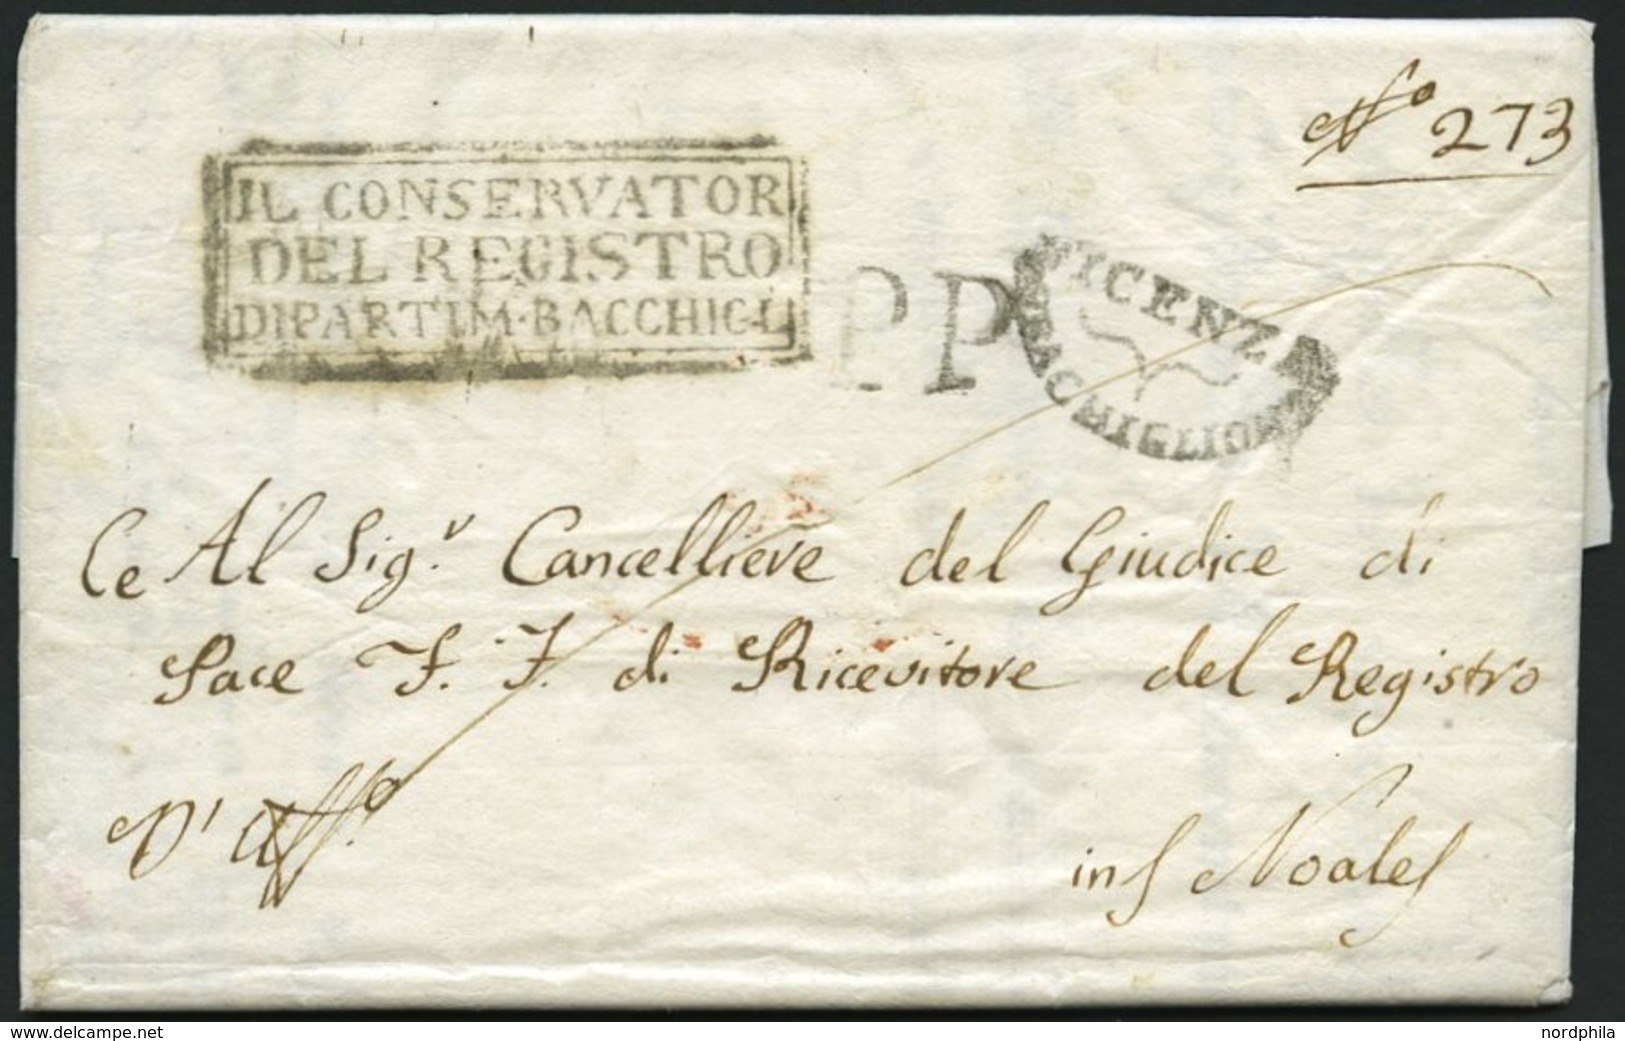 Nº 273
IL CONSERVATOR
DEL REGISTRO
DIPARTIM·BACCHIGL
PP
VICENZA
BACCHIGLIONE
Ce Al Sig.r Cancelliere del Giudice di
Pace F. F. di Ricevitore del Registro
D' Uff.o
in Noale
www.delcampe.net
nordphila